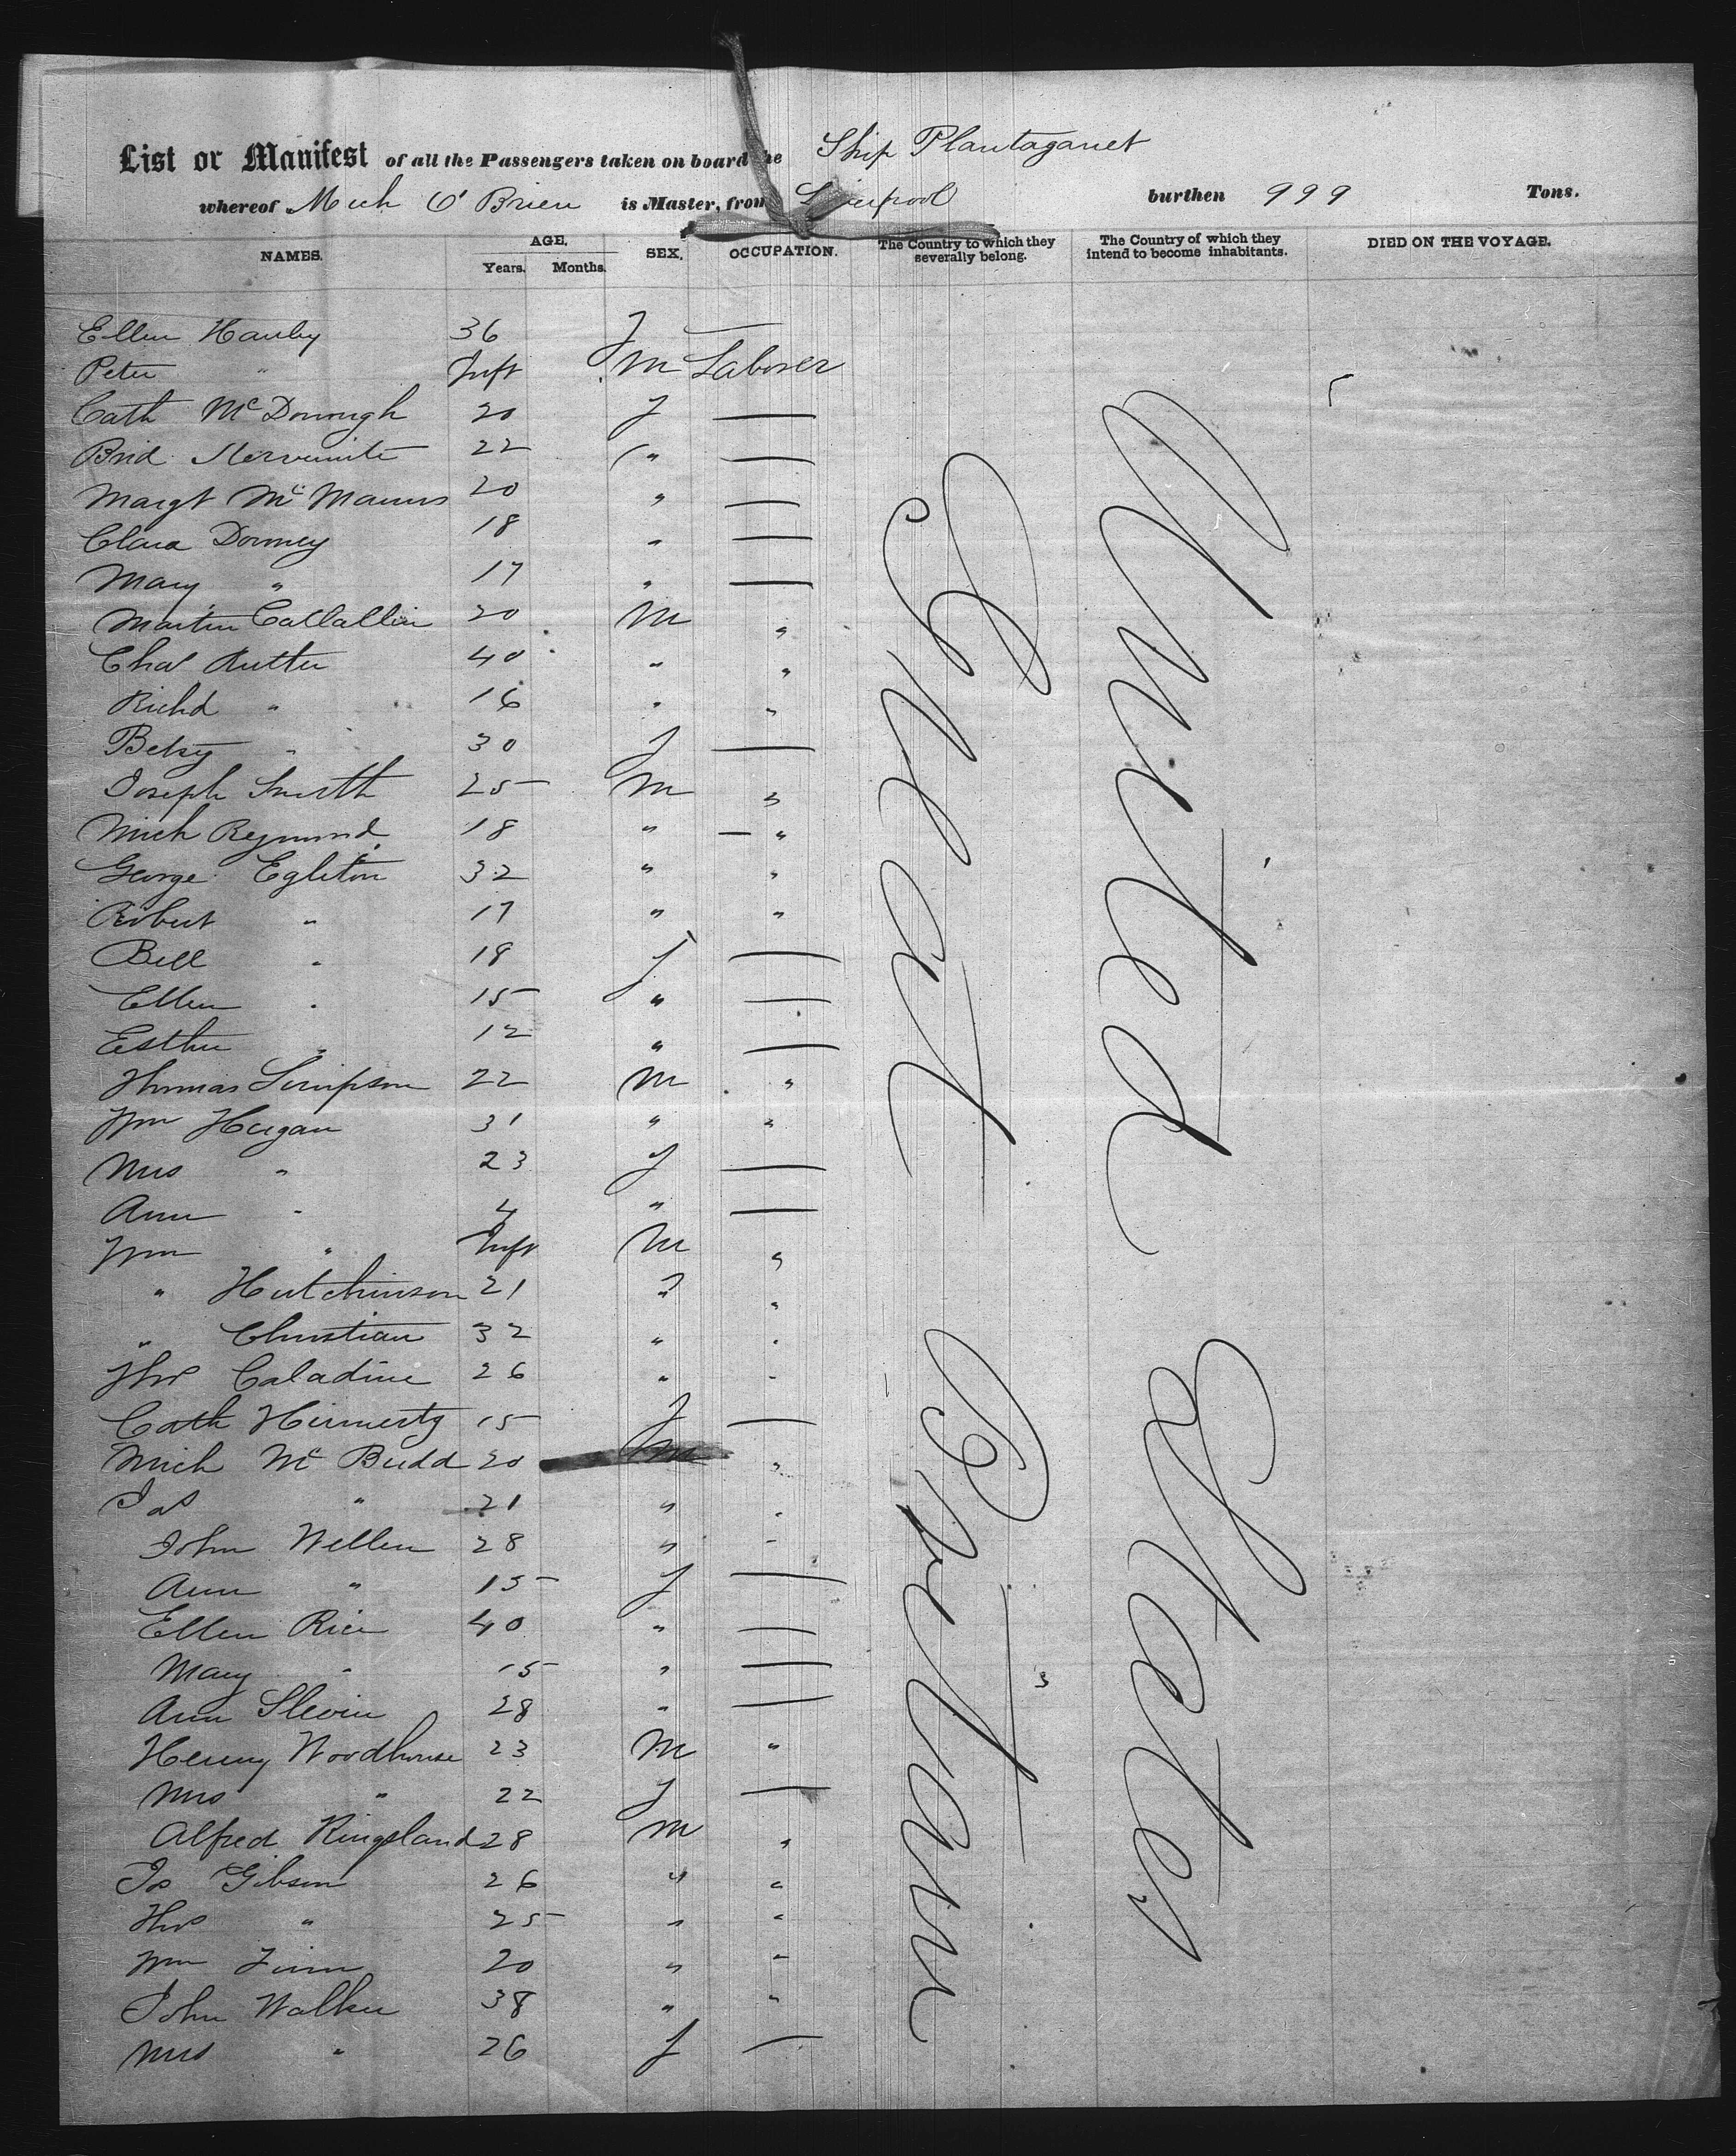 List or Manifest of all the Passengers taken on board the Ship Plantaganet
whereof Mich O'Brien is Master, from Liverpool burthen 999 Tons.
NAMES. AGE. Years. Months. SEX. OCCUPATION. The Country to which they severally belong. The Country of which they intend to become inhabitants. DIED ON THE VOYAGE.
Ellen Hanley 36 f —
Peter " Inft M Laborer
Cath McDonough 20 f —
Brid 22 " —
Margt McManus 20 " —
Clara Downey 18 " —
Mary " 17 " —
Martin Callallin 20 M "
Chas Rutter 40 " "
Richd " 16 " "
Betsy " 30 f —
Joseph Smith 25 M "
Mich Reymond 18 " — "
George Egleton 32 " "
Robert " 17 " "
Bell " 18 f —
Ellen " 15 " —
Esther " 12 " —
Thomas Simpson 22 M "
Wm Hagan 31 " "
Mrs " 23 f —
Ann " 4 " —
Wm " Inft M "
" Hutchinson 21 " "
" Christian 32 " "
Thos Caladine 26 " "
Cath 15 f —
Mich McBudd 20 M "
Jas " 21 " "
John Wellen 28 " "
Ann " 15 f —
Ellen Rice 40 " —
Mary " 15 " —
Ann Slevin 28 " —
Henry Woodhouse 23 M "
Mrs " 22 f —
Alfred Kingsland 28 M "
Js Gibson 26 " "
Thos " 25 " "
Wm Finn 20 " "
John Walker 38 " "
Mrs " 26 f —
Great Britain
United States